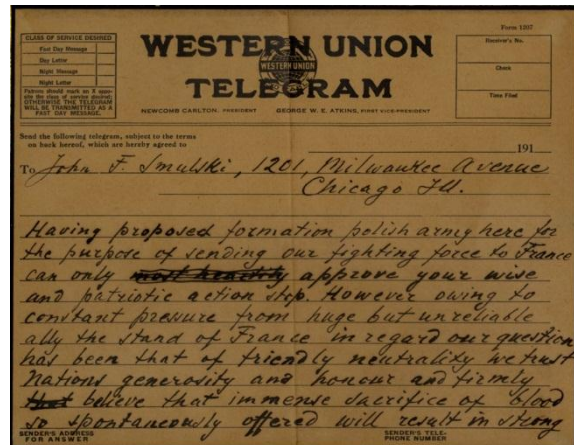 Form 1207
CLASS OF SERVICE DESIRED
Fast Day Message
Day Letter
Night Message
Night Letter
Patrons should mark an X oppo-
site the class of service desired;
OTHERWISE THE TELEGRAM
WILL BE TRANSMITTED AS A
FAST DAY MESSAGE.
WESTERN UNION
WESTERN UNION
TELEGRAM
NEWCOMB CARLTON, PRESIDENT GEORGE W. E. ATKINS, FIRST VICE-PRESIDENT
Receiver's No.
Check
Time Filed
Send the following telegram, subject to the terms
on back hereof, which are hereby agreed to
191
To John F. Smulski, 1201, Milwaukee Avenue
Chicago Ill.
Having proposed formation polish army here for
the purpose of sending our fighting force to France
can only most heartily approve your wise
and patriotic action stop. However owing to
constant pressure from huge but unreliable
ally the stand of France in regard our question
has been that of friendly neutrality we trust
Nations generosity and honour and firmly
that believe that immense sacrifice of blood
so spontaneously offered will result in strong
SENDER'S ADDRESS
FOR ANSWER
SENDER'S TELE-
PHONE NUMBER